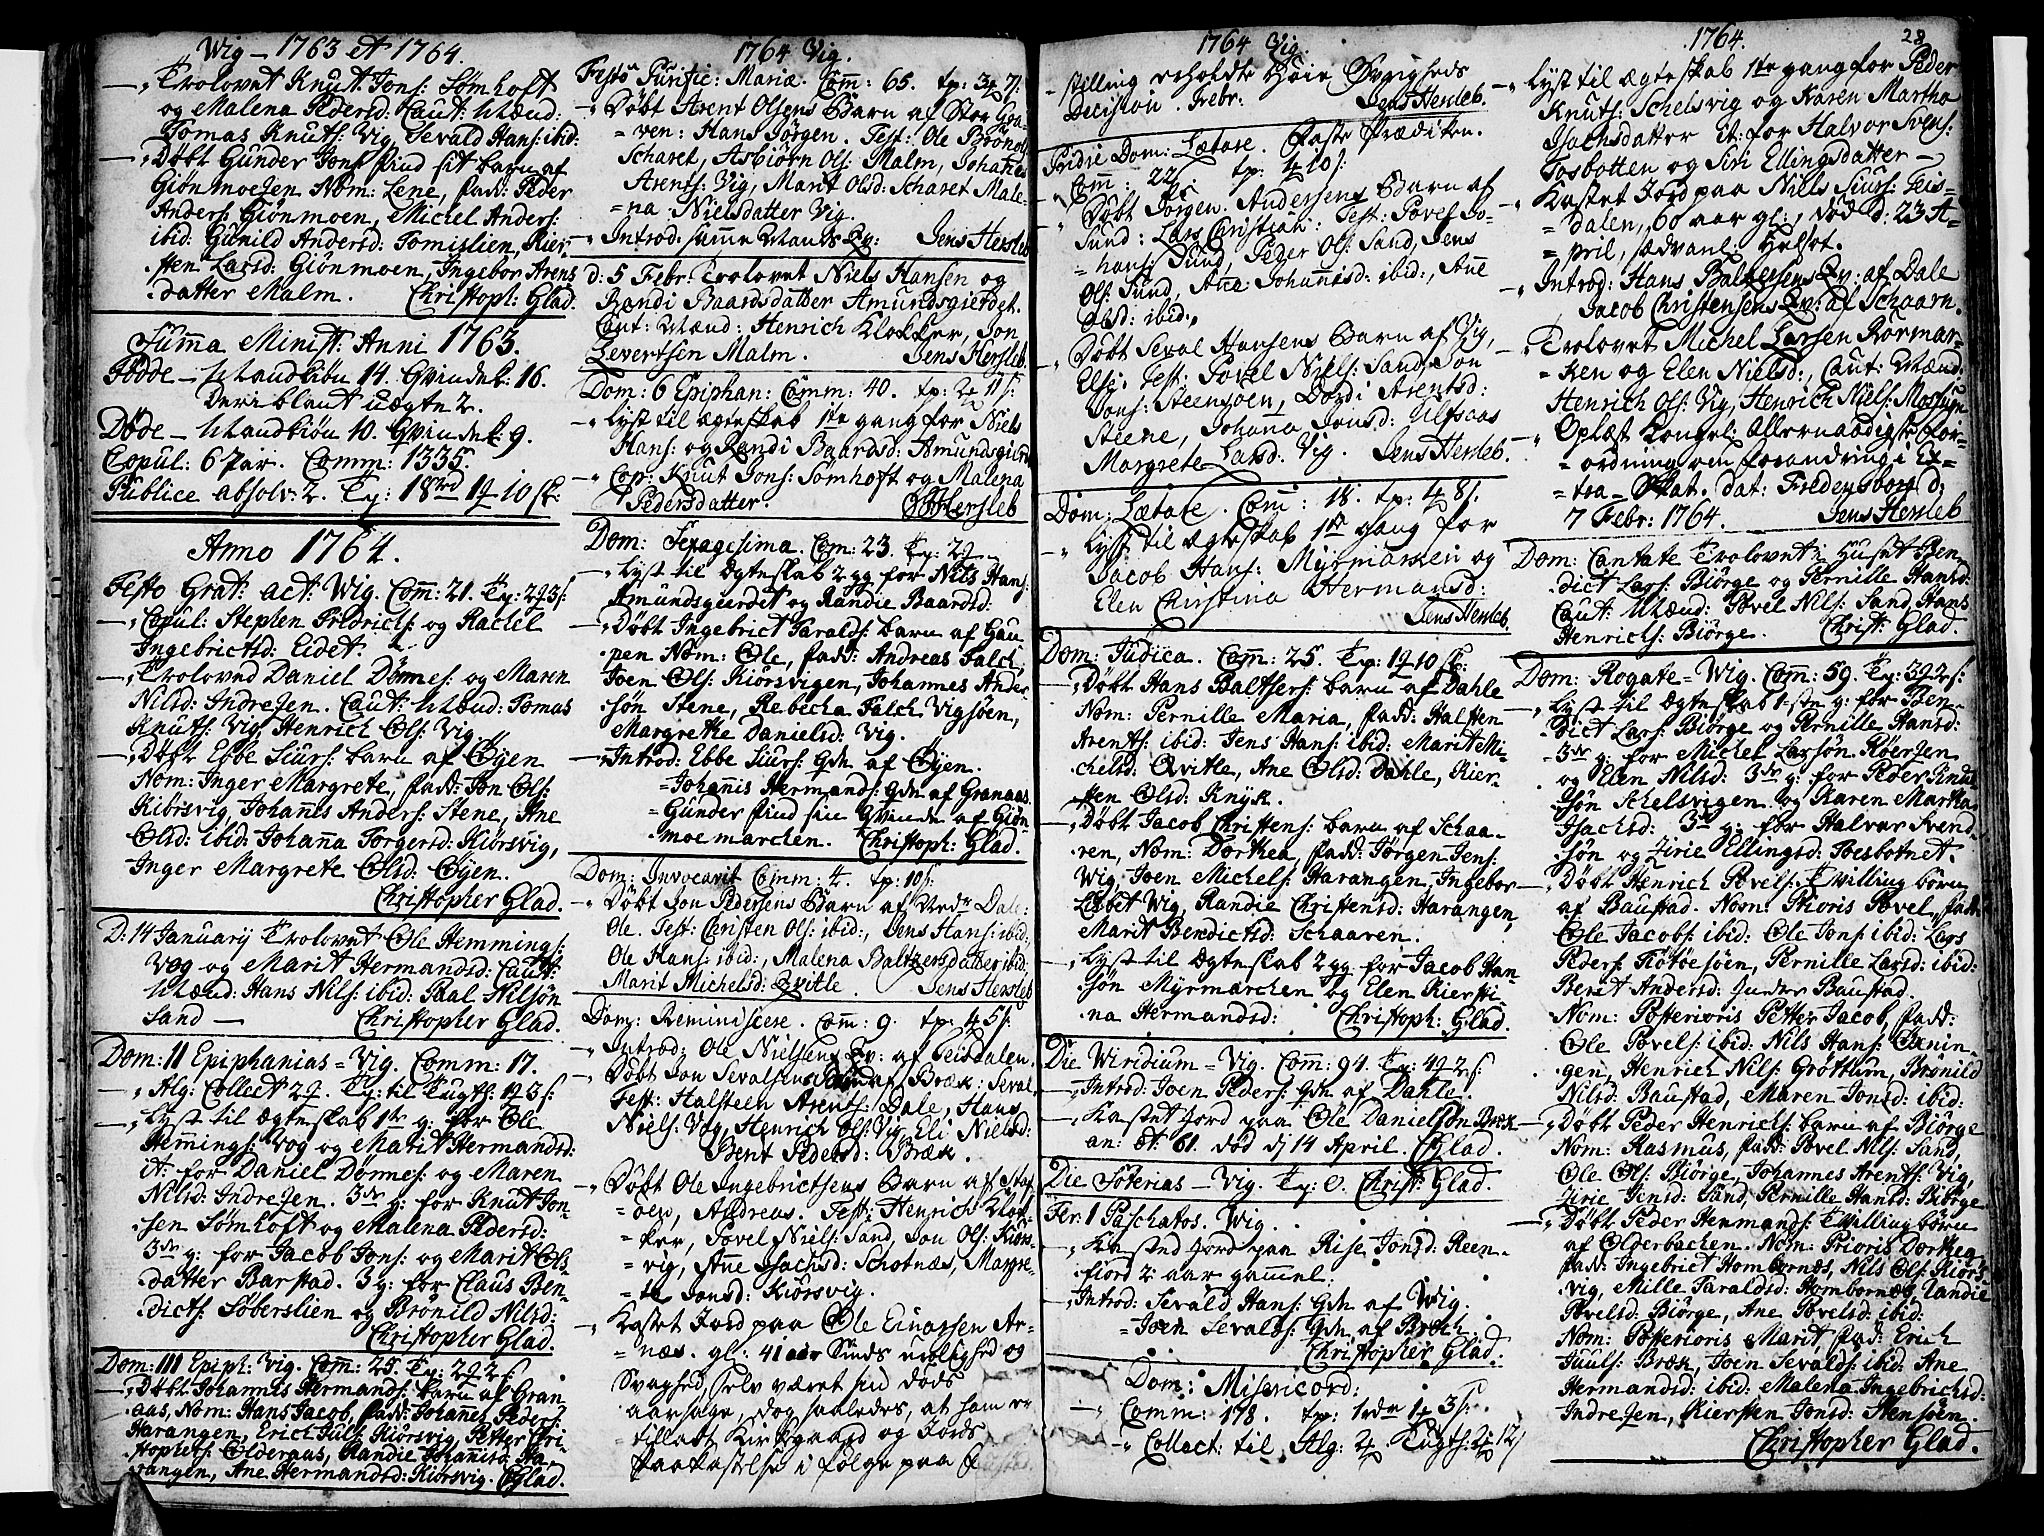 Wig - 1763 et 1764
-, Trolovet Knut Jons: Sømhoft
og Malena Pedersd: Caut: Mænd:
Tomas Knuts: Vig, Sevald Hans: ibid:
-, Døbt Gunder Jons: sit barn af
Giønmoejen Nom: Lene, fadd: Peder
Anders: Giønmoen, Michel Anders:
ibid: Gunild Andersd: Tomislien, Kier-
sten Larsd: Giønmoen, Ingebor Arens
datter Malm. Christoph: Glad.
Summa Minist: Anni 1763.
Fødde - Mandkiøn 14. Qvindek: 16.
Deriblant uægte 2.
Døde - Mandkiøn 10. Qvindek: 9.
Copul: 6 Par. Comm: 1335.
Publice absolv: 2. Tp: 18rd 1 10 sk:
Anno 1764.
Festo Grat: act: Wig. Com: 21. Tp: 2 3 s:
-, Copul: Stephen Fridrichs: og Rachel
Ingebrictsd: Eidet.
-, Troloved Daniel Dønnes: og Maren
Nilsd: Indrejen. Caut: Mænd: Tomas
Knuts: Vig, Henrich Ols: Vig.
-, Døbt Ebbe Siurs: barn af Øyen
Nom: Inger Margrete, fadd: Jon Ols:
Kiørsvig, Johanes Anders: Stene, Ane
Olsd: ibid: Johanna Torgersd: Kiørsvig,
Inger Margrete Olsd: Øyen.
Christopher Glad.
D: 14 January Trolovet Ole Hemmings:
Vog og Marit Hermandsd: Caut:
Mænd: Hans Nils: ibid: Paal Nilsøn
Sand - Christopher Glad.
Dom: II Epiphanias = Vig. Comm: 17.
-, Alg: Collect 2. Tp: til Tugth: 1 3 s:
-, Lyst til Ægteskab 1te g: for Ole
Hemings: Vog og Marit Hermandsd:
it: for Daniel Dønnes: og Maren
Nilsd: Indrejen. 3die g: for Knut Jon-
sen Sømhoft og Malena Pedersd:
3die g: for Jacob Jons: og Marit Ols-
datter Barstad. 3 g: for Claus Ben-
dicts: Søberslien og Brønild Nilsd:
Christopher Glad.
Dom: III Epiph: Vig. Comm: 25. Tp: 2 2 s:
-, Døbt Johannes Hermands: barn af Gran-
aas, Nom: Hans Jacob, fadd: Johannes Peders:
Harangen, Erich Juls: Kiørsvig, Petter Chri-
stophers: Olderaas, Randie Johanisd: Ha-
rangen, Ane Hermandsd: Kiørsvig. CGlad.
1764 Vig.
Festo Purific: Mariæ. Comm: 65. tp: 3 7 s:
-, Døbt Arent Olsens Barn af Stor Gra-
= ven: Hans Jørgen. Test: Ole Brønel
Scharet, Asbiørn Ols: Malm, Johanes
Arents: Vig, Marit Olsd: Scharet Male-
= na Nielsdatter Vig.
-, Introd: samme Mands Qv: Jens Hersleb
d: 5 Febr: Trolovet Niels Hansen og
Randi Baardsdatter Amundsgierdet.
Caut: Mænd: Henrich Klokker, Jon
Levertsen Malm. Jens Hersleb.
Dom: 6 Epiphan: Comm: 40. tp: 2 11 s:
-, Lyst til ægteskab 1te gang for Niels
Hans: og Randi Baardsd: Amundsgierd
-, Cop: Knut Jons: Sømhoft og Malena
Pedersdatter. JHersleb
Dom: Sexagesima. Com: 23. Tp: 2
-, Lyst til Ægteskab 2 gg for Nils Hans:
Amundsgeerdet og Randie Baardsd:
-, Døbt Ingebrict Taralds: barn af Gau
pen Nom: Ole, fadd: Andreas Falch,
Joen Ols: Kiørsvigen, Johannes Ander-
søn Stene, Rebecha Falch Vigsøen,
Margrette Danielsd: Vig.
-, Introd: Ebbe Siurs: Qde af Øyen.
= Johanis Hermands: Qde af Granaas.
= Gunder find sin Qvinde af Giøn-
moemarchen. Christoph: Glad.
Dom: Invocavit Comm: 4. tp: 10 s:
-, Døbt Jon Pedersens Barn af Nedr Dale:
Ole. Test: Christen Ols: ibid:, Jens Hans: ibid:,
Ole Hans: ibid:, Malena Baltzersdatter ibid:
Marit Michelsd: Qvitle. Jens Hersleb
Dom: Reminiscere. Com: 9. tp: 1 5 s:
-, Introd: Ole Nielsens Qv: af Teisdalen.
-, Døbt Jon Sevalsens Barn af Bræk: Seval
Test: Halsteen Arents: Dale, Hans
Niels: Vog, Henrich Ols: Vig Eli Nielsd:
Berit Pedersd: Bræk.
-, Døbt Ole Ingebrictsens Barn af Staf-
= øen, Andreas. Test: Henrich Klok-
= ker, Povel Niels: Sand, Jon Ols: Kiørs-
= vig, Ane Isachsd: Schotnæs, Margre-
= te Jonsd: Kiørsvig.
-, Kastet Jord paa Ole Einarsen Ar-
= næs. gl: 41 aar Sinds urolighed og
Svaghed, selv været sin Døds
aarsage, dog saaledes, at ham er
tilladt Kirkegaard og Jords
paakastelse i følge paa
1764 Vig.
-stilling erholdte Høie Øvrigheds
Decision. Febr: Jens Hersleb.
Fridie Dom: Lætare. Faste Prædiken.
Comm: 22. tp: 1 10 s:
-, Døbt Jørgen Andersens Barn af
Sund: Lars Christian: Test: Povel Jo-
= hans: Sund, Peder Ols: Sand, Jens
Ols: Sund, Ane Johannisd: ibid:, Ane
Olsd: ibid:,
-, Døbt Seval Hansens Barn af Vig,
Elsi: Test: Povel Niels: Sand, Jon
Jons: Steensøen, Dordi Arentsd:
Steene, Johana Jonsd: Ulfsaas
Margrete Larsd: Vig. Jens Hersleb.
Dom: Lætare. Com: 18. tp: 4 8 s.
-, Lyst til Ægteskab 1te Gang for
Jacob Hans: Myrmarken og
Elen Christina Hermansd:
Jens Hersleb.
Dom: Judica. Com: 25. Tp: 1 10 sk:
-, Døbt Hans Baltsers: barn af Dahle
Nom: Pernille Maria, fadd: Halsten
Arents: ibid: Jens Hans: ibid: Marit Mi-
chelsd: Qvitle, Ane Olsd: Dahle, Kier-
sten Olsd: Knyk.
-, Døbt Jacob Christens: barn af Schaa-
ren, Nom: Dorthea, fadd: Jørgen Jens:
Wig, Joen Michels: Harangen, Ingebor
Lisbet Wig, Randie Christensd: Harangen,
Marit Bendictsd: Schaaren.
-, Lyst til Ægteskab 2 gg. for Jacob Han-
søn Myrmarchen og Elen Kiersti-
na Hermandsd: Christoph: Glad.
Die Wiridium = Vig. Com: 94. Tp: 4 2 s:
-, Introd: Joen Peders: Qde af Dahle.
-, Kastet Jord paa Ole Danielsøn Bræk
an: æt: 61. død d: 14 April. CGlad.
Die Soterias - Vig. Tp: 0. Christ: Glad.
Fer: 1 Paschatos. Wig.
-, Kasted Jord paa Rise Jonsd: Reen-
fiord 2 aar gammel.
-, Introd: Sevald Hans: Qde af Wig.
= Joen Sevalds: Qde af Brech.
Christopher Glad.
Dom: Misericord:
-, Comm: 178. tp: 1rdr 1 3 s:
-, Collect: til Alg: 2 Tugth: 2 12 s
1764. 28
-, Lyst til ægteskab 1te gang for Peder
Knuts: Schelsvig og Karen Martha
Isachsdatter Et: for Halvor Svens:
Fosbotten og Siri Ellingsdatter -
-, Kastet Jord paa Niels Siurs: Teis-
= dalen, 60 aar gl:, død d: 23 A-
= pril, sædvanl: Helsot.
-, Introd: Hans Baltzersens Qv: af Dale
Jacob Christensens Qv: af Schaarn.
-, Trolovet Michel Larsen Rørmar-
= ken og Elen Nielsd:, Caut: Mænd:
Henrich Ols: Vig, Henrich Niels: Moshugn
-, Oplæst Kongel: Allernaadigste For-
= ordning om forandring i Ex-
= tra - Skat. dat: Fredensborg d:
7 Febr: 1764. Jens Hersleb
Dom: Cantate Trolovet i Huset Ben-
dict Lars: Biørge og Pernille Hansd:
Caut: Mænd: Povel Nils: Sand, Hans
Henrichs: Biørge. Christ: Glad.
Dom: Rogate = Wig. Com: 59. Tp: 3 2 s:
-, Lyst til Ægteskab 1ste g: for Ben-
dict Lars: Biørge og Pernille Hansd:
3die g: for Michel Larsøn Røerjen
og Elen Nilsd: 3die g: for Peder Knut-
søn Schelsvigen og Karen Martha
Isachsd: 3die g: for Halvor Svend-
søn og Zirie Ellingsd: Foesbotnet.
-, Døbt Henrich Povels: Tvilling børn
af Baustad. Nom: Prioris Povel, fadd:
Ole Jacobs: ibid: Ole Jons: ibid: Lars
Peders: Fiøtøesøen, Pernille Larsd: ibid:
Berit Andersd: Indre Baustad.
Nom: Posterioris Petter Jacob, fadd:
Ole Povels: ibid: Nils Hans: Benin-
gen, Henrich Nils: Grøttum, Brønild
Nilsd: Baustad, Maren Jonsd: ibid:
-, Døbt Peder Henrichs: barn af Biørge
Nom: Rasmus, fadd: Povel Nils: Sand,
Ole Ols: Biørge, Johannes Arents: Vig,
Zirie Jensd: Sand, Pernille Hansd: Biørge
-, Døbt Peder Hermands: Tvilling børn
af Olderbachen. Nom: Prioris Dorthea,
fadd: Ingebrict Hombornæs, Nils Ols: Kiørs-
vig, Mille Taraldsd: Hombornæs, Randie
Povelsd: Biørge, Ane Povelsd: ibid:
Nom: Posterioris Marit, fadd: Erich
Juuls: Bræk, Joen Sevalds: ibid: Ane
Hermandsd: ibid: Malena Ingebrichsd:
Indrejen, Kiersten Jonsd: Stensøen.
Christopher Glad.